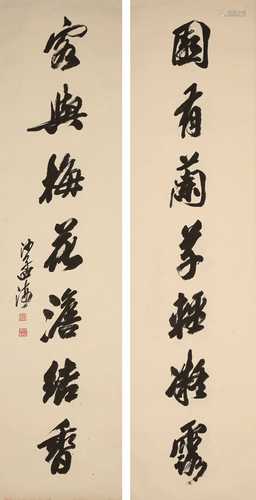 園有蘭芽輕凝露
客與梅花澹結香
沙孟海